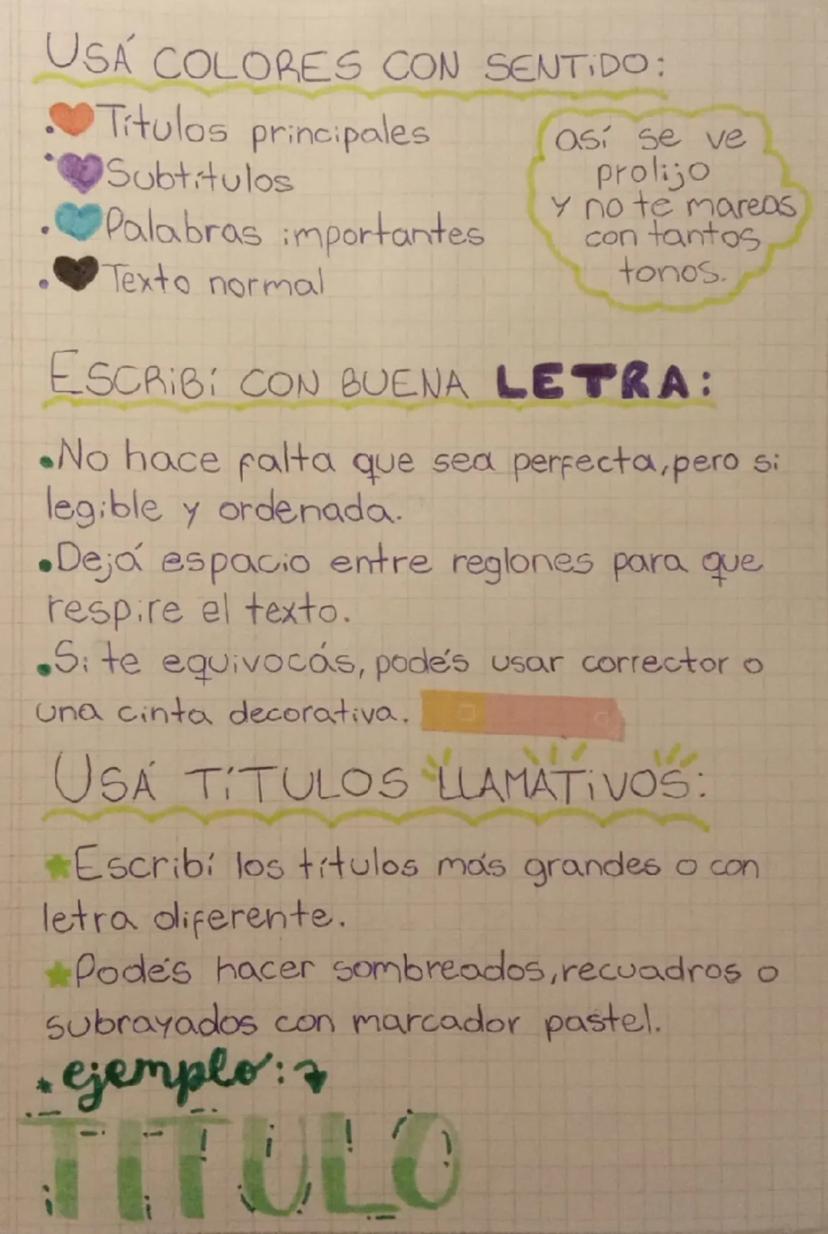 USÁ COLORES CON SENTIDO:
Títulos principales
Subtítulos
Palabras importantes
Texto normal
así se ve
prolijo
y no te mareas
con tantos
tonos.
ESCRIBÍ CON BUENA LETRA:
No hace falta que sea perfecta, pero si
legible y ordenada.
Dejá espacio entre reglones para que
respire el texto.
Si te equivocás, podés usar corrector o
una cinta decorativa.
USÁ TÍTULOS LLAMATIVOS:
Escribí los títulos más grandes o con
letra diferente.
Podés hacer sombreados, recuadros o
subrayados con marcador pastel.
ejemplo:
TITULO